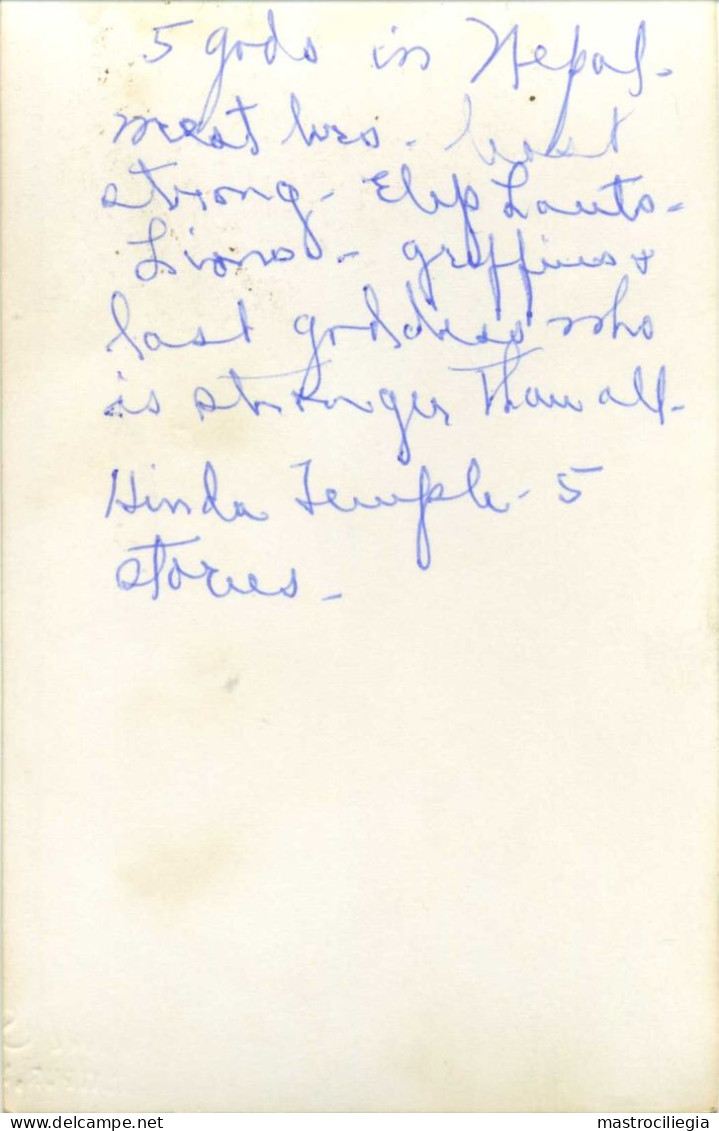 5 gods in Nepal -
least
strong - Elephants -
Lions - griffins +
last goddess who
is stronger than all -
Hindu Temple - 5
stories -
mastrociliegia